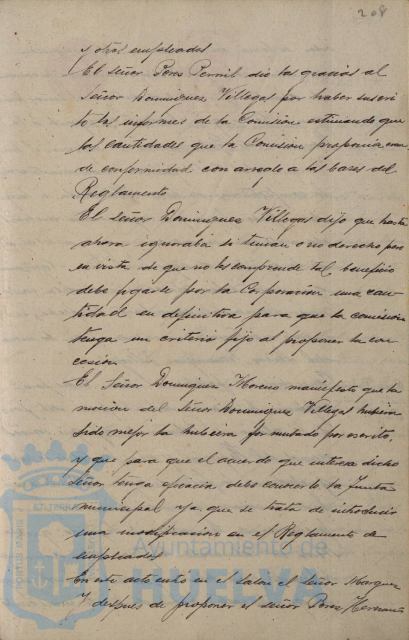 208
y otros empleados
El Señor Perez Pernil dio las gracias al
Señor Dominguez Villegas por haber suscri
to los informes de la Comisión estimando que
las cantidades que la Comisión proponia eran
de conformidad con arreglo a las bases del
Reglamento
El Señor Dominguez Villegas dijo que hasta
ahora ignoraba si tenian o no derecho pero
en vista de que no les comprende tal beneficio
debe fijarse por la Corporacion una can
tidad en definitiva para que la comision
tenga un criterio fijo al proponer la con
cesion
El Señor Dominguez Moreno manifesto que la
mocion del Señor Dominguez Villegas hubiera
sido mejor la hubiera formulado por escrito,
y que para que el acuerdo que interesa dicho
Señor tenga eficacia debe conocer lo la Junta
municipal ya que se trata de introducir
una modificacion en el Reglamento de
empleados
En este acto entro en el Salon el Señor Marquez
Y despues de proponer el Señor Perez
Ayuntamiento de
HUELVA